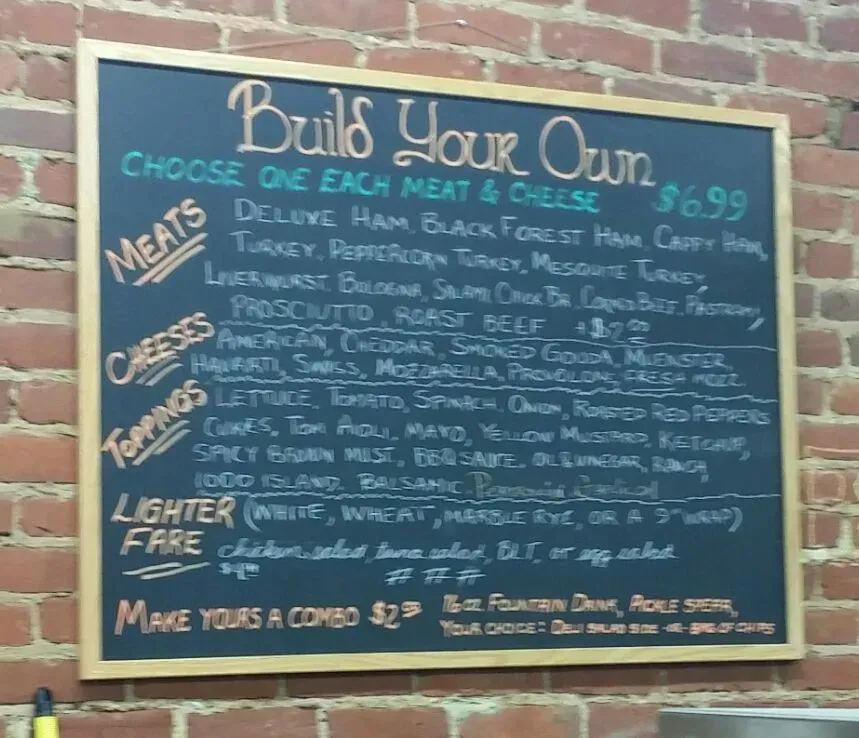 Build Your Own
CHOOSE ONE EACH MEAT & CHEESE $6.99
MEATS
DELUXE HAM, BLACK FOREST HAM, CAPPY HAM,
TURKEY, PEPPERCORN TURKEY, MESQUITE TURKEY,
LIVERWURST, BOLOGNA, SALAMI, CHICK BR, CORNED BEEF, PASTRAMI,
PROSCIUTTO, ROAST BEEF +$2.00
CHEESES
AMERICAN, CHEDDAR, SMOKED GOUDA, MUENSTER,
HAVARTI, SWISS, MOZZARELLA, PROVOLONE, FRESH MOZZ.
TOPPINGS
LETTUCE, TOMATO, SPINACH, ONION, ROASTED RED PEPPERS
CUKES, TOM AIOLI, MAYO, YELLOW MUSTARD, KETCHUP,
SPICY BROWN MUST, BBQ SAUCE, OIL & VINEGAR, RANCH,
1000 ISLAND, BALSAMIC
LIGHTER FARE
(WHITE, WHEAT, MARBLE RYE, OR A 9" WRAP)
chicken salad, tuna salad, BLT, or egg salad
# # #
MAKE YOURS A COMBO $2.99
16oz FOUNTAIN DRINK, PICKLE SPEAR,
YOUR CHOICE: DELI SALAD SIDE -OR- BAG OF CHIPS